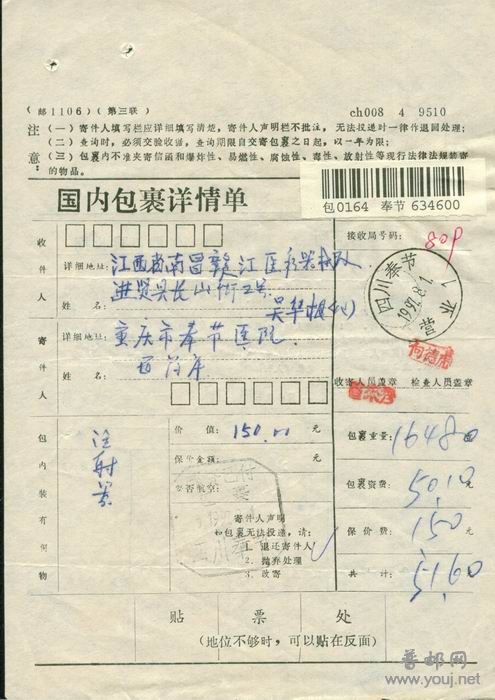 (邮1106)(第三联) ch008 4 9510
注意:
(一)寄件人填写栏应详细填写清楚,寄件人声明栏不批注,无法投递时一律作退回处理;
(二)查询时,必须交验收据,查询期限自交寄包裹之日起,以一年为限;
(三)包裹内不准夹寄信函和爆炸性、易燃性、腐蚀性、毒性、放射性等现行法律法规禁寄的物品。
包0164 奉节 634600
国内包裹详情单
接收局号码:
80P
收件人
详细地址: 江西省南昌赣江医疗器械
进贤县长山街2号
姓名:
寄件人
详细地址: 重庆市奉节医院
姓名:
西药库
四川奉节
1997.8.1
收寄人员盖章 检查人员盖章
包内装有何物
注射器
价值: 150.00 元
保价金额: 元
是否航空:
寄件人声明
如包裹无法投递,请:
1. 退还寄件人
2. 抛弃处理
3. 改寄
包裹重量: 16480
包裹资费: 50.10 元
保价费: 150 元
共计: 51.60 元
贴票处
(地位不够时,可以贴在反面)
普邮网
www.youj.net